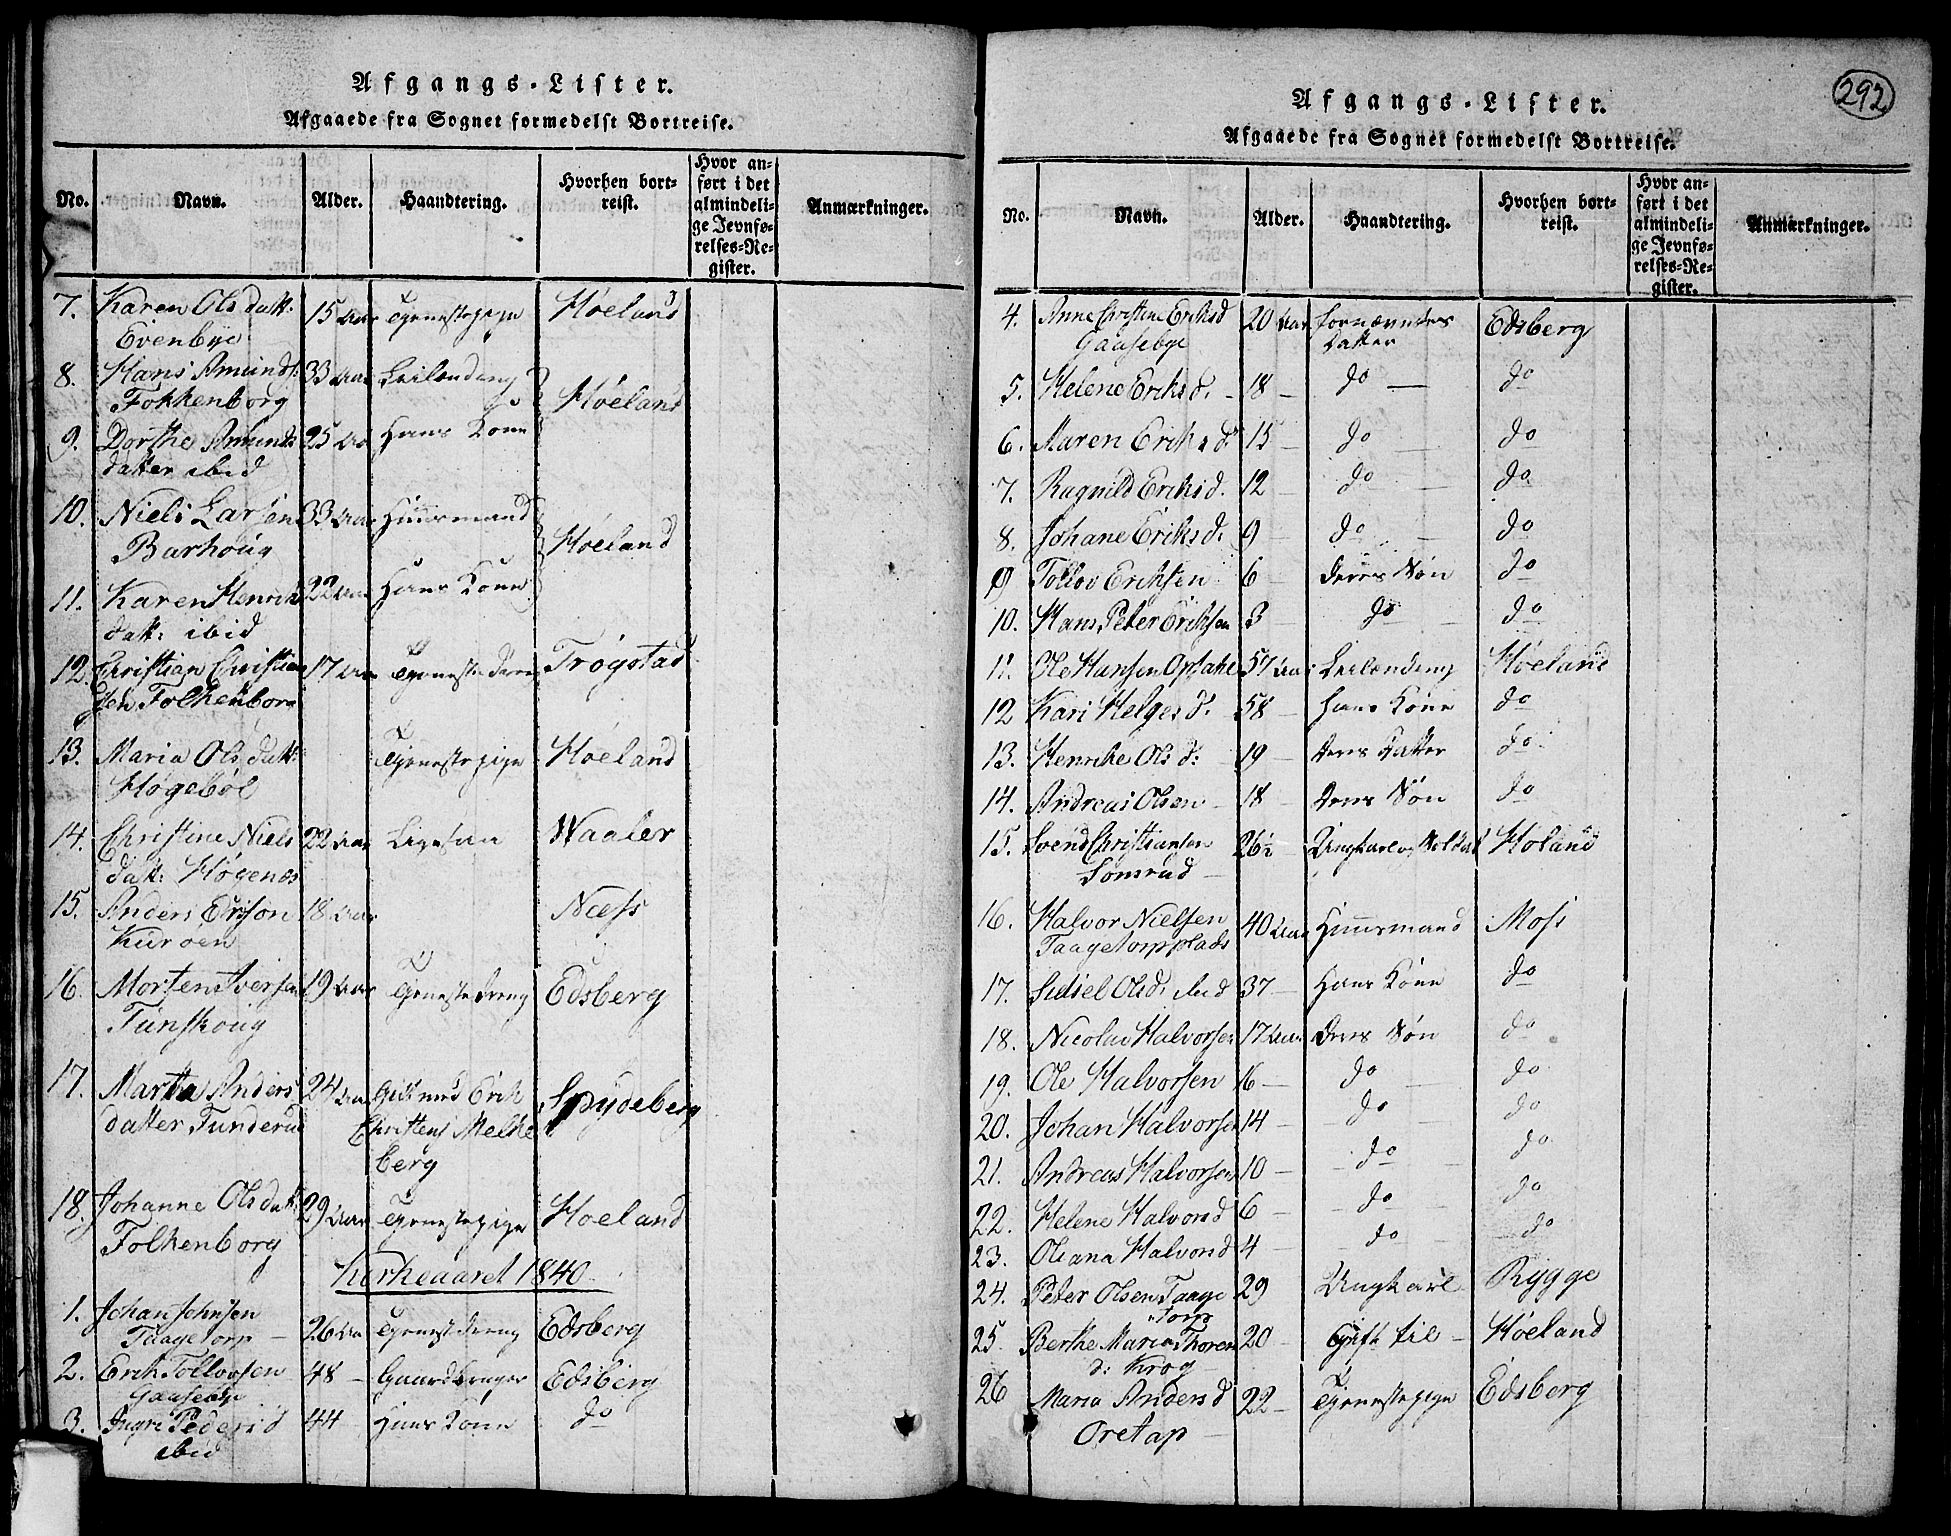 Afgangs-Lister.
Afgaaede fra Sognet formedelst Bortreise.
No. Navn. Alder. Haandtering. Hvorhen bortreist. Hvor anført i det almindelige Jevnførelses-Register. Anmærkninger.
7. Karen Olsdatt: 15 Aar Tjenestepige Høeland
Evenbye
8. Hans Amunds: 33 Aar Leilænding
Folkenborg Høeland
9. Dorthe Amunds 25 Aar Hans Kone
datter ibid
10. Niels Larsen 33 Aar Huusmand
Barhoug Høeland
11. Karen Henriks 22 Aar Hans Kone
datt: ibid
12. Christian Christian 17 Aar Tjenestedreng Trøgstad
sen Folkenborg
13. Maria Olsdatt: Tjenestepige Høeland
Høgebøl
14. Christine Niels 22 Aar Ligesaa Waaler
datt: Høgenæs
15. Anders Erison 18 Aar Næss
Kurøen
16. Morten Iversen 19 Aar Tjenestedreng Edsberg
Tunskoug
17. Martha Anders 24 Aar Gift med Erik Spydeberg
datter Tunderud Christens Melke
berg
18. Johanne Olsdatt: 29 Aar Tjenestepige Høeland
Folkenborg
Kirkeaaret 1840.
1. Johan Johnsen
Taagetorp 26 Aar Tjenestedreng Edsberg
2. Erik Tollovsen 48 Gaardbruger Edsberg
Gaasebye
3. Ingri Pedersd 44 Hans Kone do
ibid
292
Afgangs-Lister.
Afgaaede fra Sognet formedelst Bortreise.
No. Navn. Alder. Haandtering. Hvorhen bortreist. Hvor anført i det almindelige Jevnførelses-Register. Anmærkninger.
4. Anne Christine Eriksd 20 Aar fornævntes Edsberg
Gaasebye Datter
5. Helene Eriksd. 18 do do
6. Maren Eriksd 15 do do
7. Ragnild Eriksd. 12 do do
8. Johane Eriksd. 9 do do
9 Tollov Eriksen 6 deres Søn do
10. Hans Peter Eriksen 3 do do
11. Ole Hansen Opsahl 57 Aar Leilænding Høeland
12 Kari Helgesd. 58 hans Kone do
13. Henrike Olsd: 19 deres Datter do
14. Andreas Olsen 18 deres Søn do
15. Svend Christiansen 26½ Ungkarl og Soldat Høland
Somsrud
16. Halvor Nielsen 40 Aar Huusmand Moss
Taagetorpplads
17. Sidsel Olsd. ibid 37 Hans Kone do
18. Nicolai Halvorsen 17 Aar deres Søn do
19. Ole Halvorsen 16 do do
20. Johan Halvorsen 14 do do
21. Andreas Halvorsen 10 do do
22. Helene Halvorsd 6 do do
23. Oleana Halvorsd 4 do do
24. Peter Olsen Taage 29 Ungkarl Rygge
torp
25. Berthe Maria Thores 20 Gift til Høeland
d: Krog
26 Maria Andersd 22 Tjenestepige Edsberg
Oretap